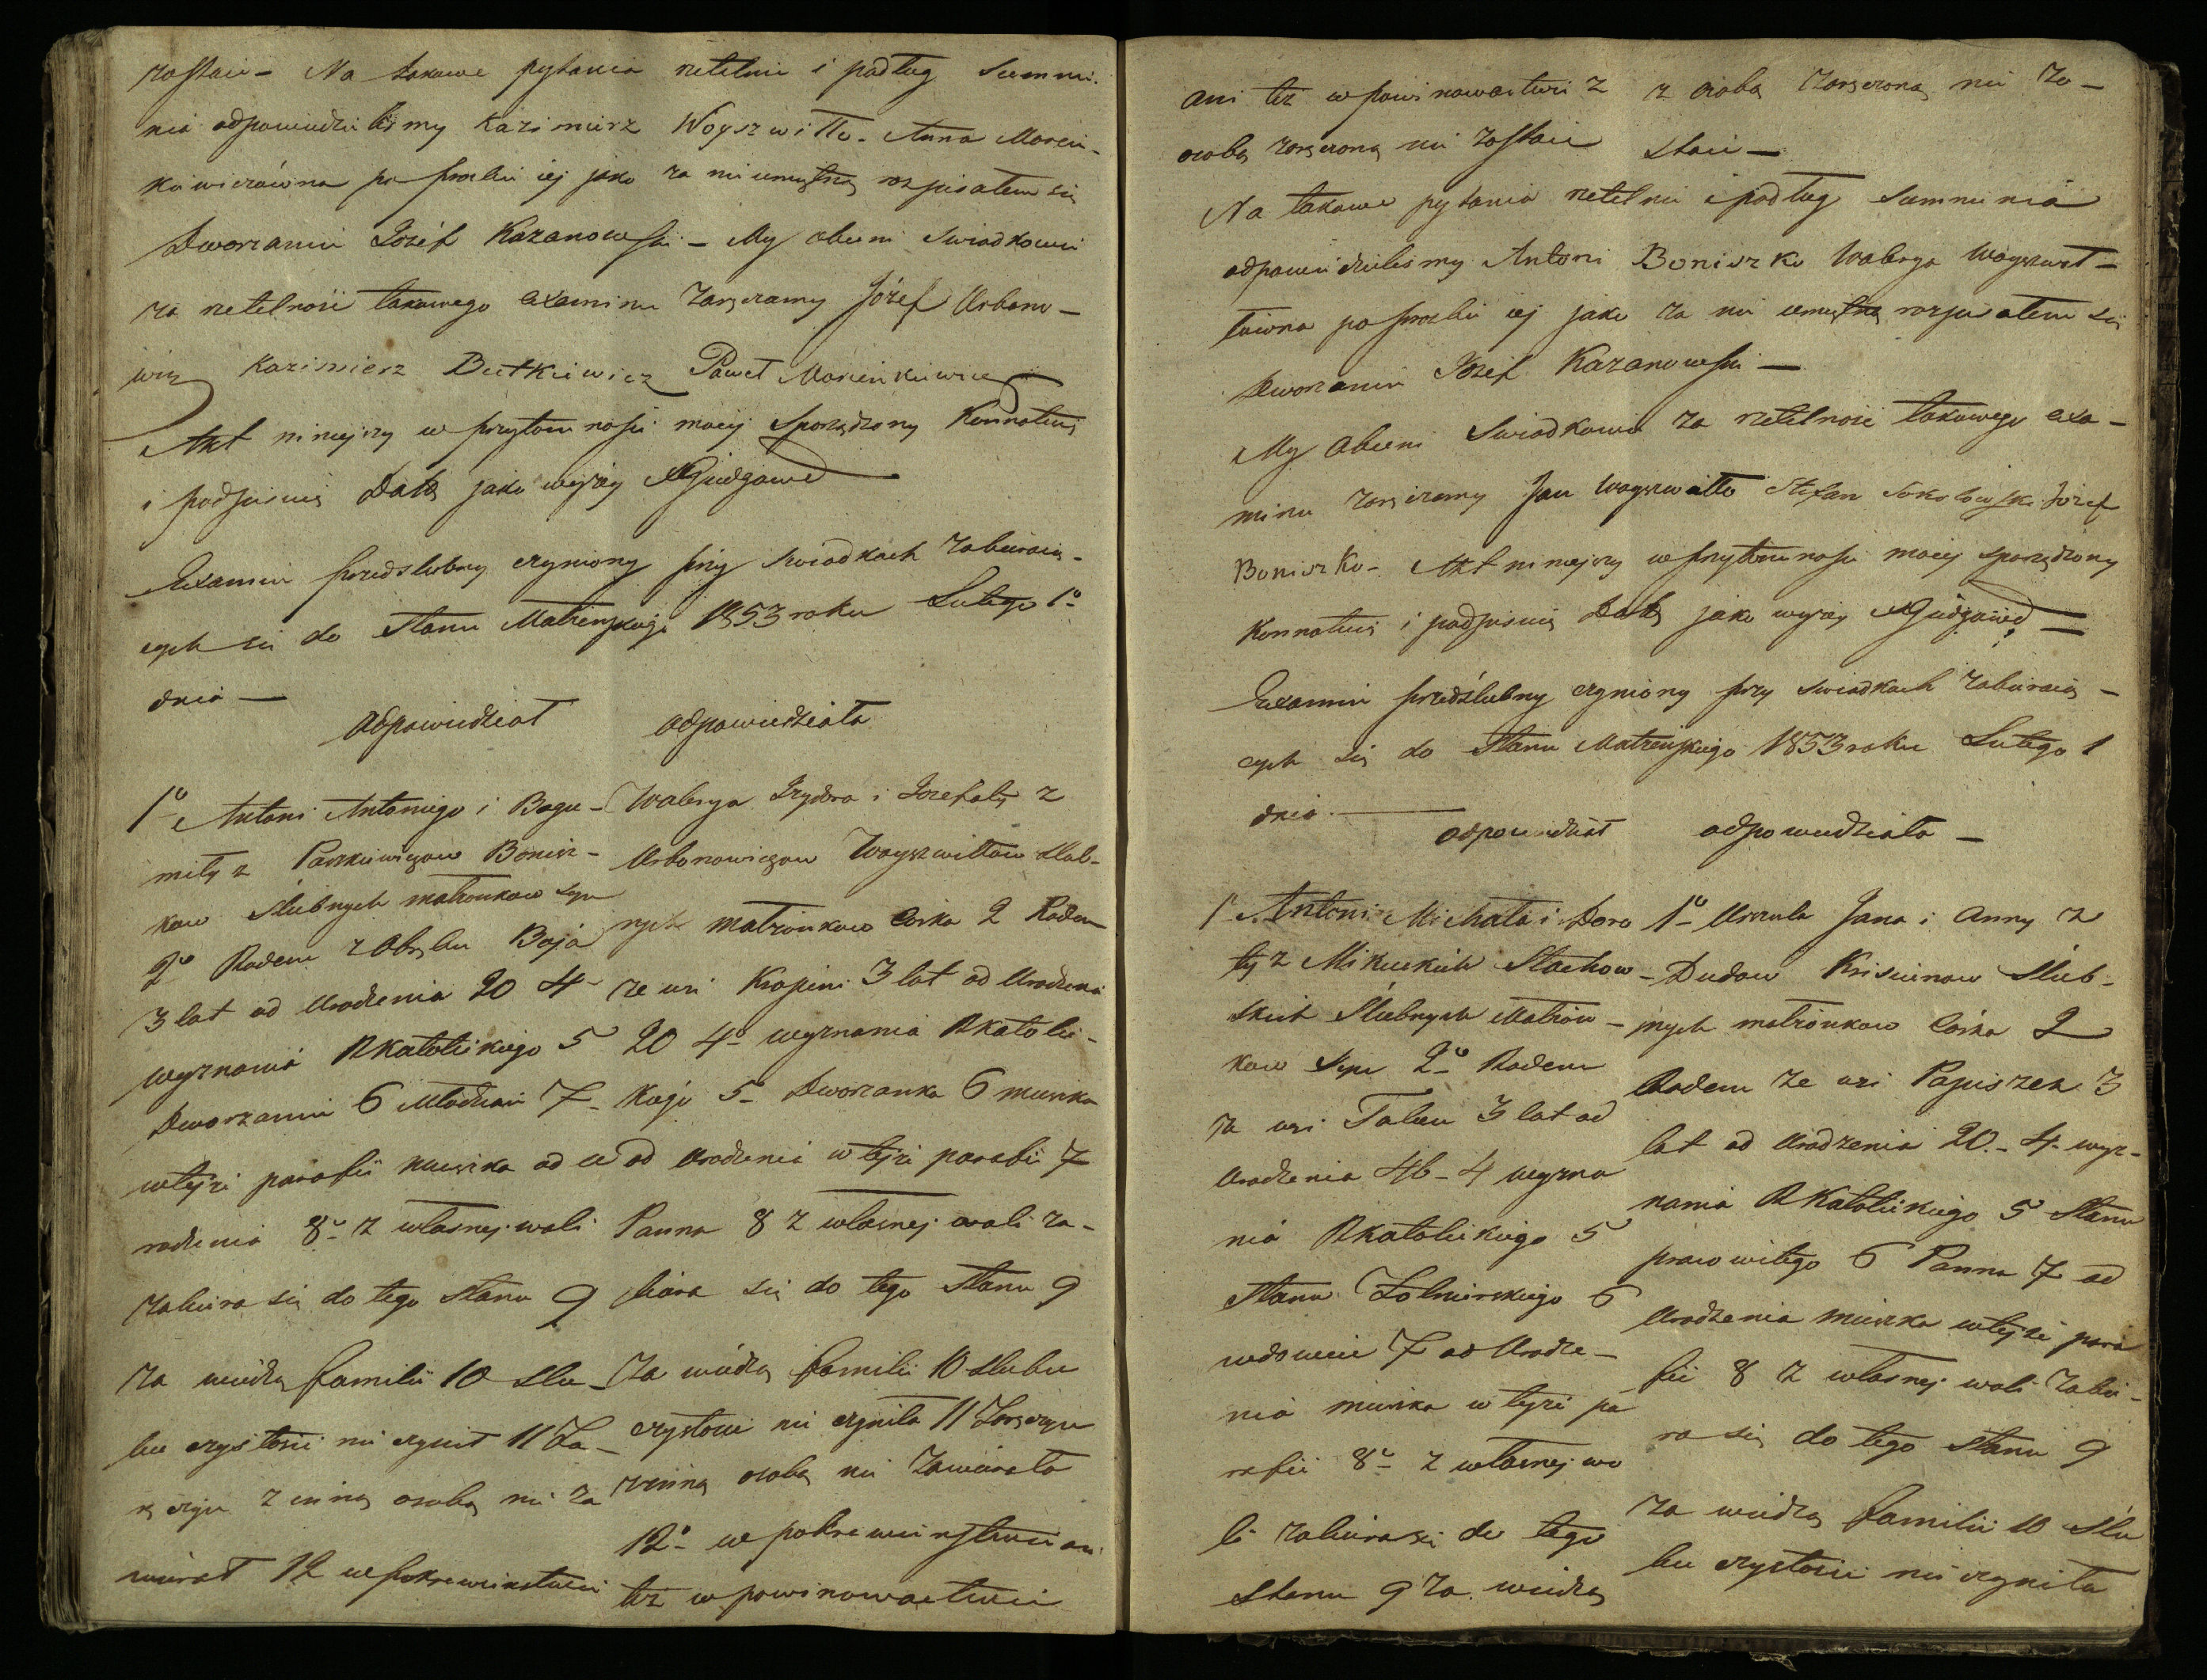 zostaie – Na takowe pytania rzetelnie i podług Summi-
nia odpowiedzieliśmy Kazimierz Woyszwiłło. Anna Marcin-
kiewiczówna po prozbie iej jako za nieumiętną rozpisałem się
Dworzanin Jozéf Kazanowski – My obecni Swiadkowie
za rzetelność takowego examinu zaręczamy Józef Urbono-
wicz Kazimierz Butkiewicz Paweł Marcinkiewicz
Akt ninieyszy w przytomności mojej sporządzony Konnotuię
i podpisuię Datą jako wyżey
Examin przedślubny czyniony przy swiadkach zabieraią-
cych się do Stanu Małżeńskiego 1853 roku Lutego 1º
dnia —
odpowiedział
1º Antoni Antoniego i Bogu-
miły z Paszkiewiczow Bonisz-
kow Slubnych małżonkow Syn
2º Rodem z Obrębu Boja
3 lat od Urodzenia 20 4-
wyznania Rkatolickiego 5
Dworzanin 6 Młodzian 7-
wtéjże parafii mieszka od u
rodzenia 8º z własnej woli
zabiera się do tego Stanu 9
za wiedzą familii 10 slu-
bu czystości nie czynił 11 Za-
ręczyn z inną osobą nie za
wierał 12 w pokrewieństwie
odpowiedziała
Walerya Izydora i Jozefaty z
Urbonowiczow Woyszwiłłow slub-
nych małżonkow Corka 2 Rodem
ze wsi Kropini 3 lat od Urodzenia
20 4º wyznania Rkatolic-
kiego 5- Dworzanka 6 mieszka
od Urodzenia w tejże parafii 7
Panna 8 z własnej woli za-
biera się do tego Stanu 9
za wiedzą familii 10 slubu
czystości nie czyniła 11 Zaręczyn
z inną osobą nie zawierała
12º w pokrewieństwie ani
też w powinowactwie
ani też w powinowactwie z
osobą zaręczoną nie zostaie
z osobą zaręczoną nie zo-
staie —
Na takowe pytania rzetelnie i podług Summienia
odpowiedzieliśmy Antoni Boniszko Walerya Woyszwił-
łówna po prozbie iej jako za nie umiętną rozpisałem się
Dworzanin Józef Kazanowski —
My Obecni Swiadkowie za rzetelność takowego exa-
minu zaręczamy Jan Woyszwiłło Stefan Sokołowski Józef
Boniszko – Akt ninieyszy w przytomności mojej sporządzony
Konnotuię i podpisuię Datą jako wyżey
Examin przedślubny czyniony przy swiadkach zabieraią-
cych się do Stanu Małżeńskiego 1853 roku Lutego 1
dnia —
odpowiedział
1º Antoni Michała i Doro
ty z Mikuckich Stachow-
skich Slubnych Małżon-
kow Syn 2º Rodem
za wsi 3 lat od
Urodzenia 46 – 4 wyzna
nia Rkatolickiego 5
Stanu Żołnierskiego 6
wdowiec 7 od Urodze-
nia mieszka w tejże pa
rafii 8º z własnej wo
li zabiera się do tego
Stanu 9 za wiedzą
odpowiedziała —
1º Urszula Jana i Anny z
Dudow Slub-
nych małżonkow Corka 2
Rodem ze wsi Papiszek 3
lat od Urodzenia 20. – 4- wyz-
nania RKatolickiego 5 Stanu
prawowitego 6 Panna 7 od
Urodzenia mieszka wtejże para
fii 8 z własnej woli zabie-
ra się do tego Stanu 9
za wiedzą familii 10 Slu
bu czystości nie czyniła